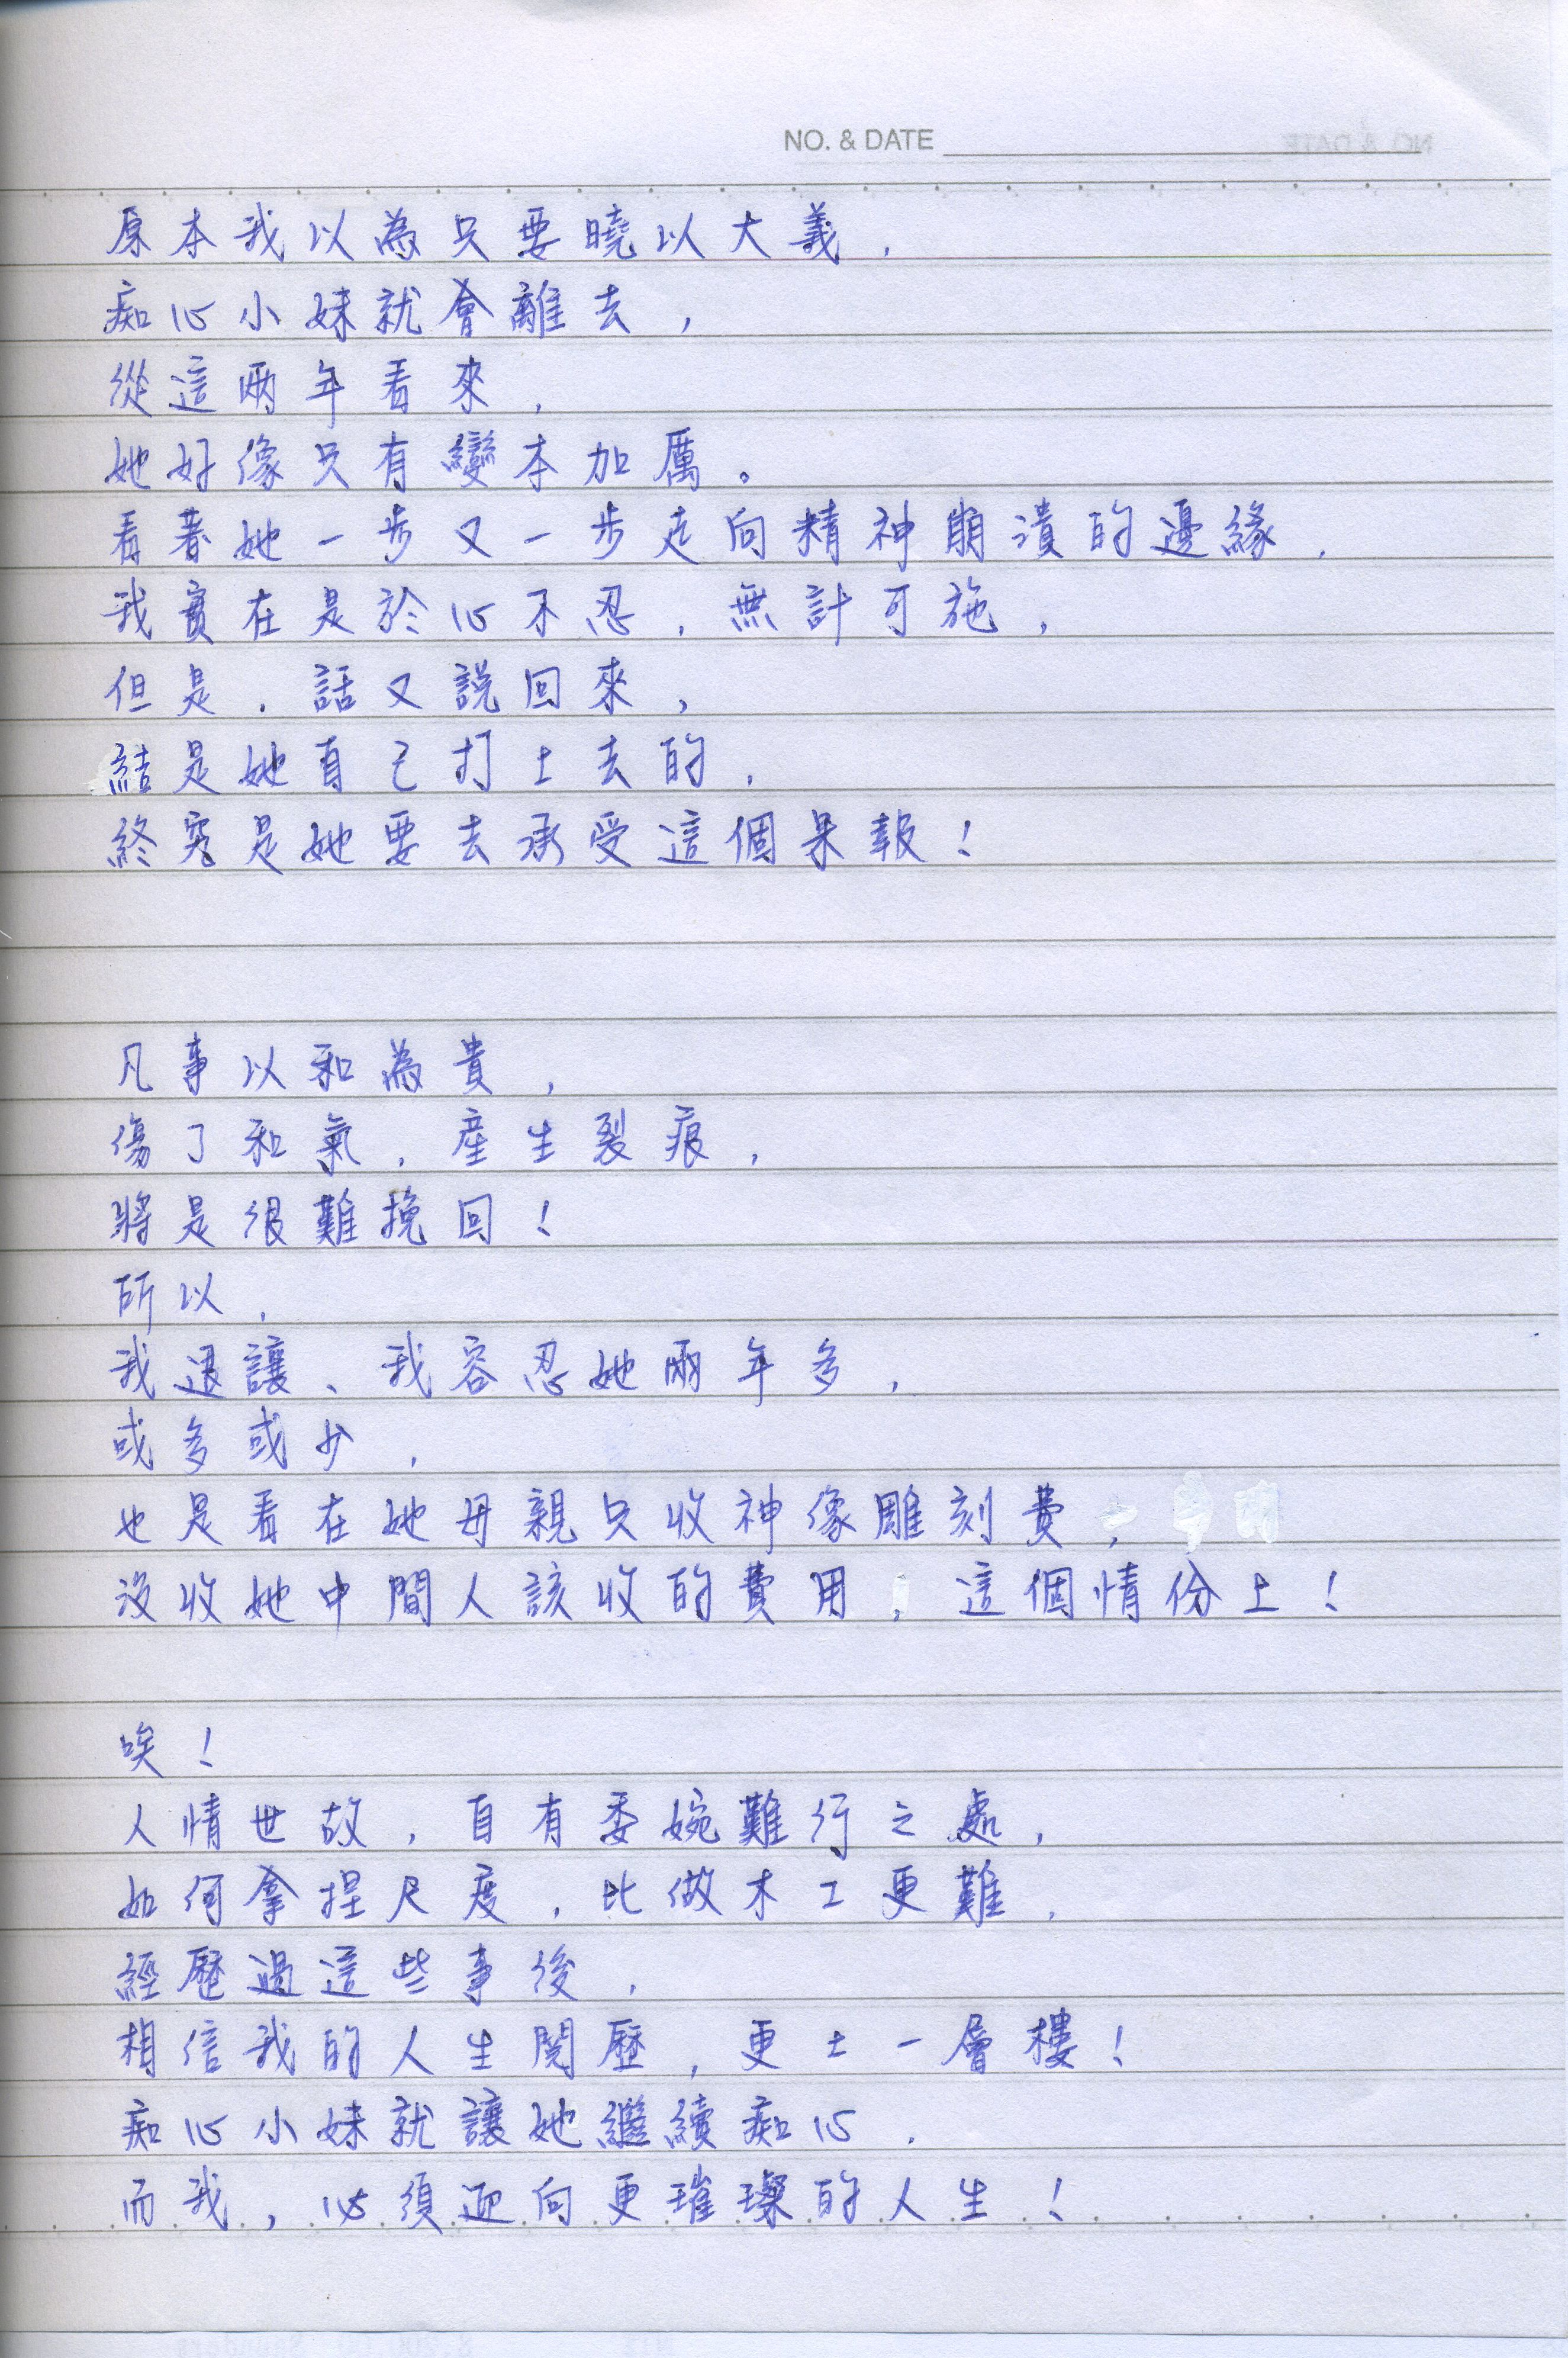 NO. & DATE
原本我以為只要曉以大義，
痴心小妹就會離去，
從這兩年看來，
她好像只有變本加厲。
看著她一步又一步走向精神崩潰的邊緣，
我實在是於心不忍，無計可施，
但是，話又說回來，
結是她自己打上去的，
終究是她要去承受這個果報！
凡事以和為貴，
傷了和氣，產生裂痕，
將是很難挽回！
所以，
我退讓、我容忍她兩年多，
或多或少，
也是看在她母親只收神像雕刻費，
沒收她中間人該收的費用，這個情份上！
唉！
人情世故，自有委婉難行之處，
如何拿捏尺度，比做木工更難，
經歷過這些事後，
相信我的人生閱歷，更上一層樓！
痴心小妹就讓她繼續痴心，
而我，必須迎向更璀璨的人生！